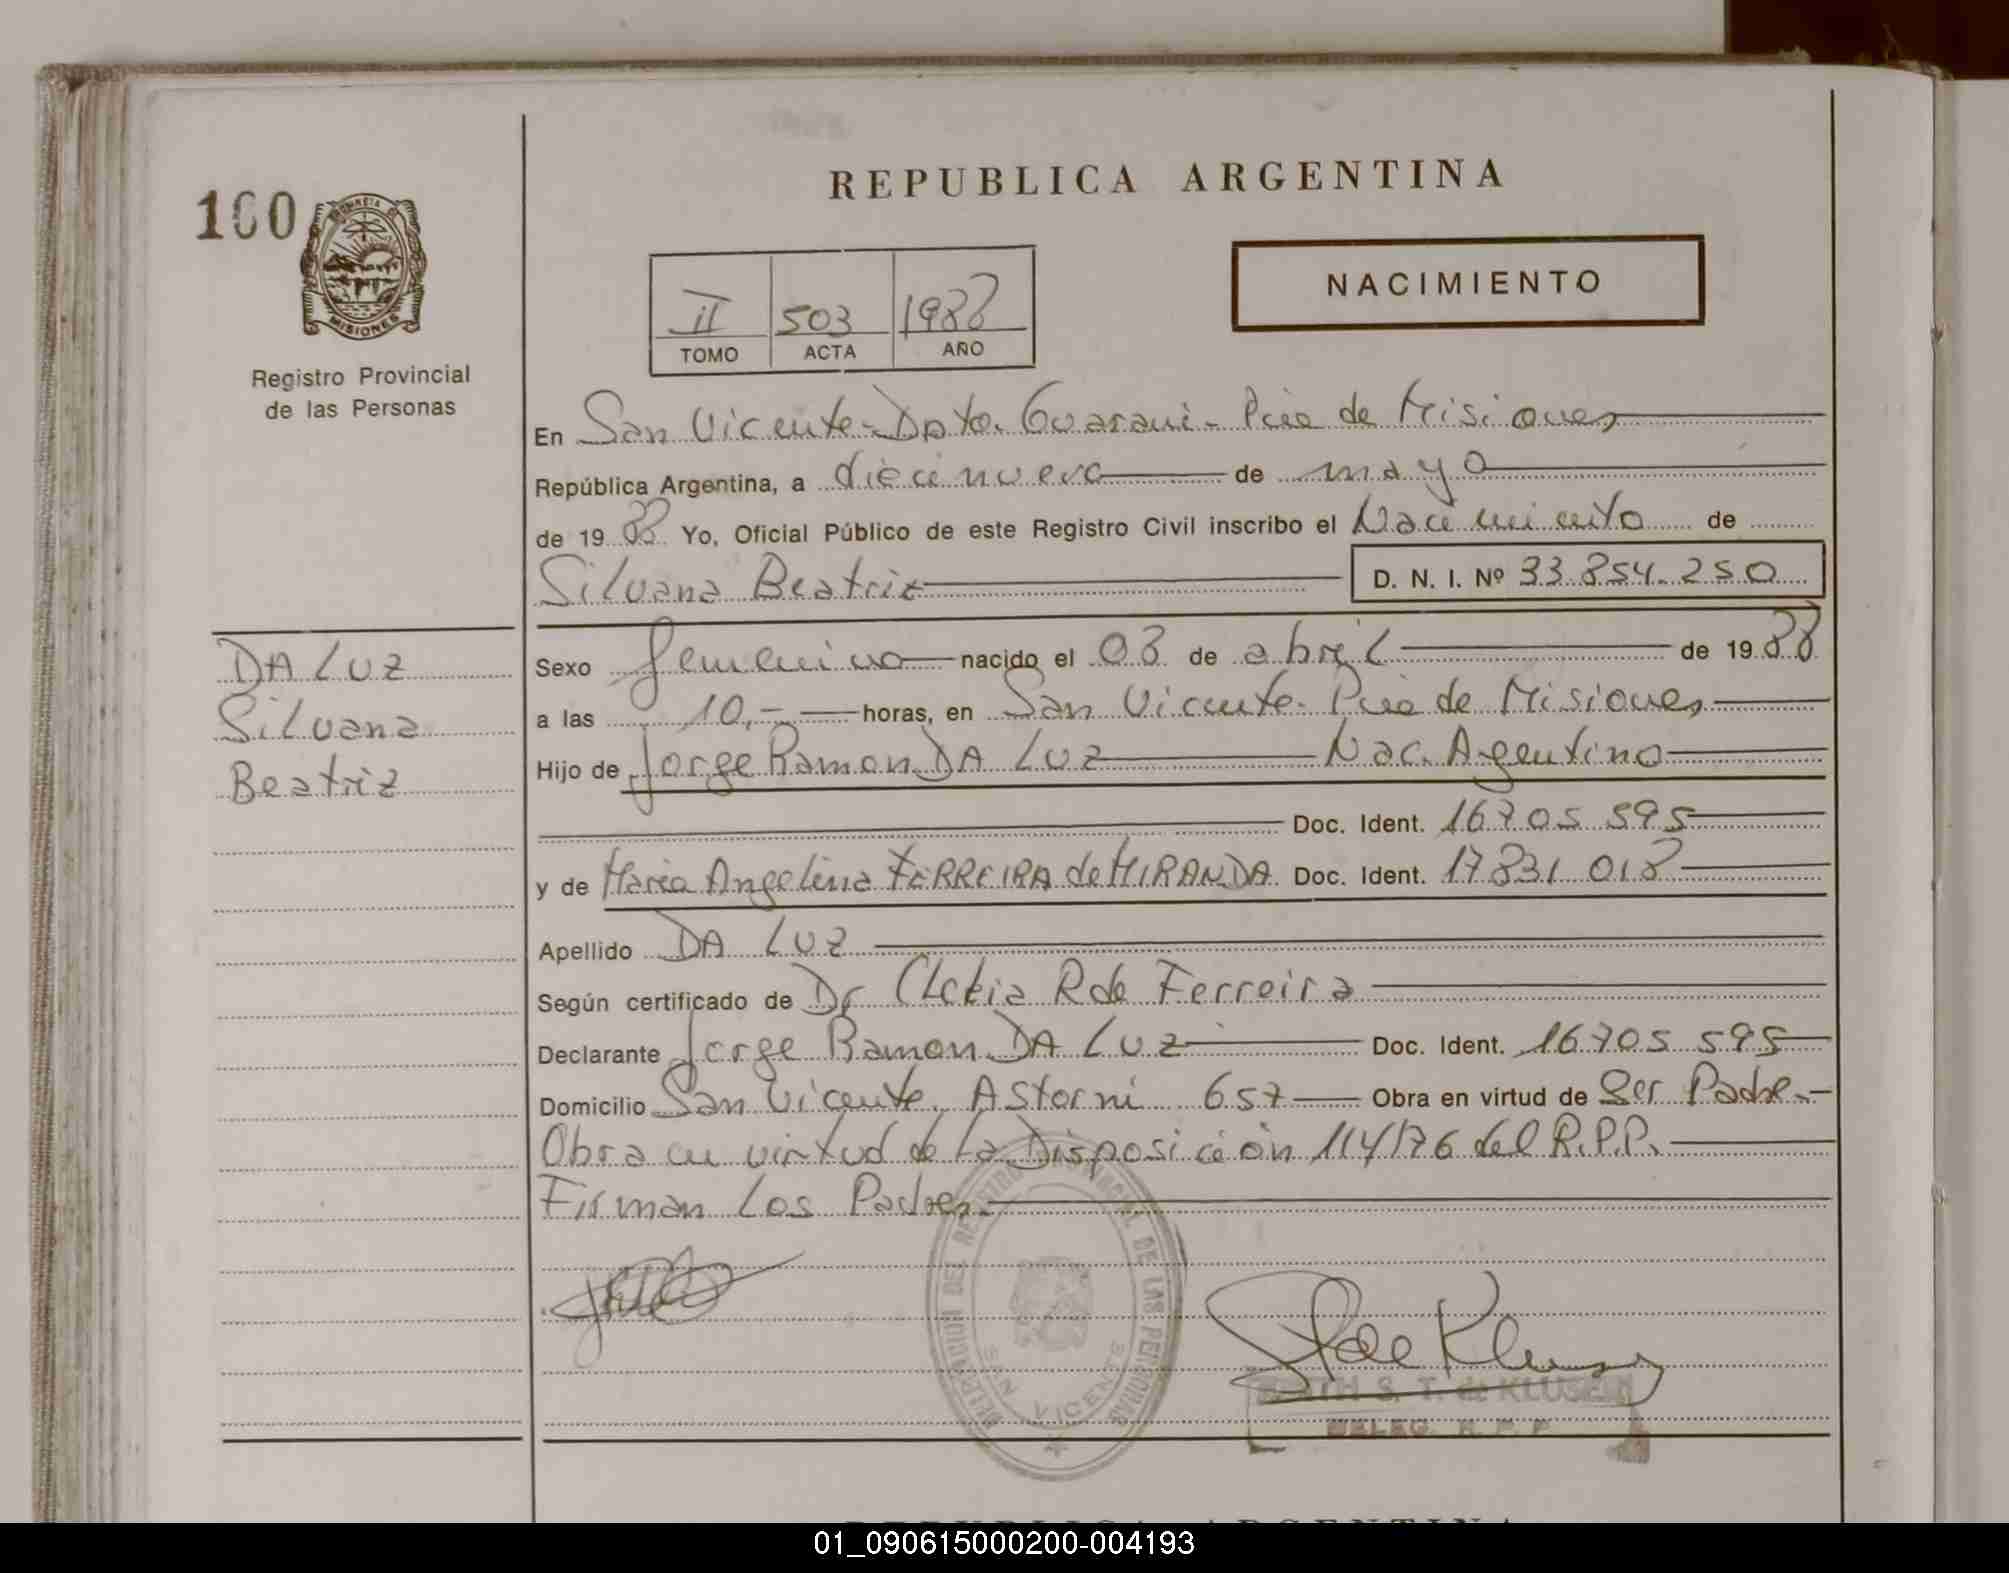 REPUBLICA ARGENTINA
100
PROVINCIA DE
MISIONES
Registro Provincial
de las Personas
NACIMIENTO
II 503 1988
TOMO ACTA AÑO
En San Vicente - Dpto. Guarani - Pcia de Misiones
República Argentina, a diecinueve de mayo
de 1988 Yo, Oficial Público de este Registro Civil inscribo el Nacimiento de
Silvana Beatriz D. N. I. Nº 33.854.250
DA LUZ
Silvana
Beatriz
Sexo femenino nacido el 08 de abril de 1988
a las 10,- horas, en San Vicente - Pcia de Misiones
Hijo de Jorge Ramon DA LUZ Nac. Argentino
Doc. Ident. 16705 595
y de Maria Angelina FERREIRA de MIRANDA Doc. Ident. 17831 018
Apellido DA LUZ
Según certificado de Dr Cletia R de Ferreira
Declarante Jorge Ramon DA LUZ Doc. Ident. 16705 595
Domicilio San Vicente, Astorni 657 Obra en virtud de Ser Padre.-
Obra en virtud de La Disposición 114/76 del R.P.P.
Firman Los Padres.
DELEGACION DEL REGISTRO PROVINCIAL DE LAS PERSONAS
SAN VICENTE
S T de Klusen
EDITH S. T. de KLUSEN
DELEG. R. P. P.
REPUBLICA ARGENTINA
01_090615000200-004193